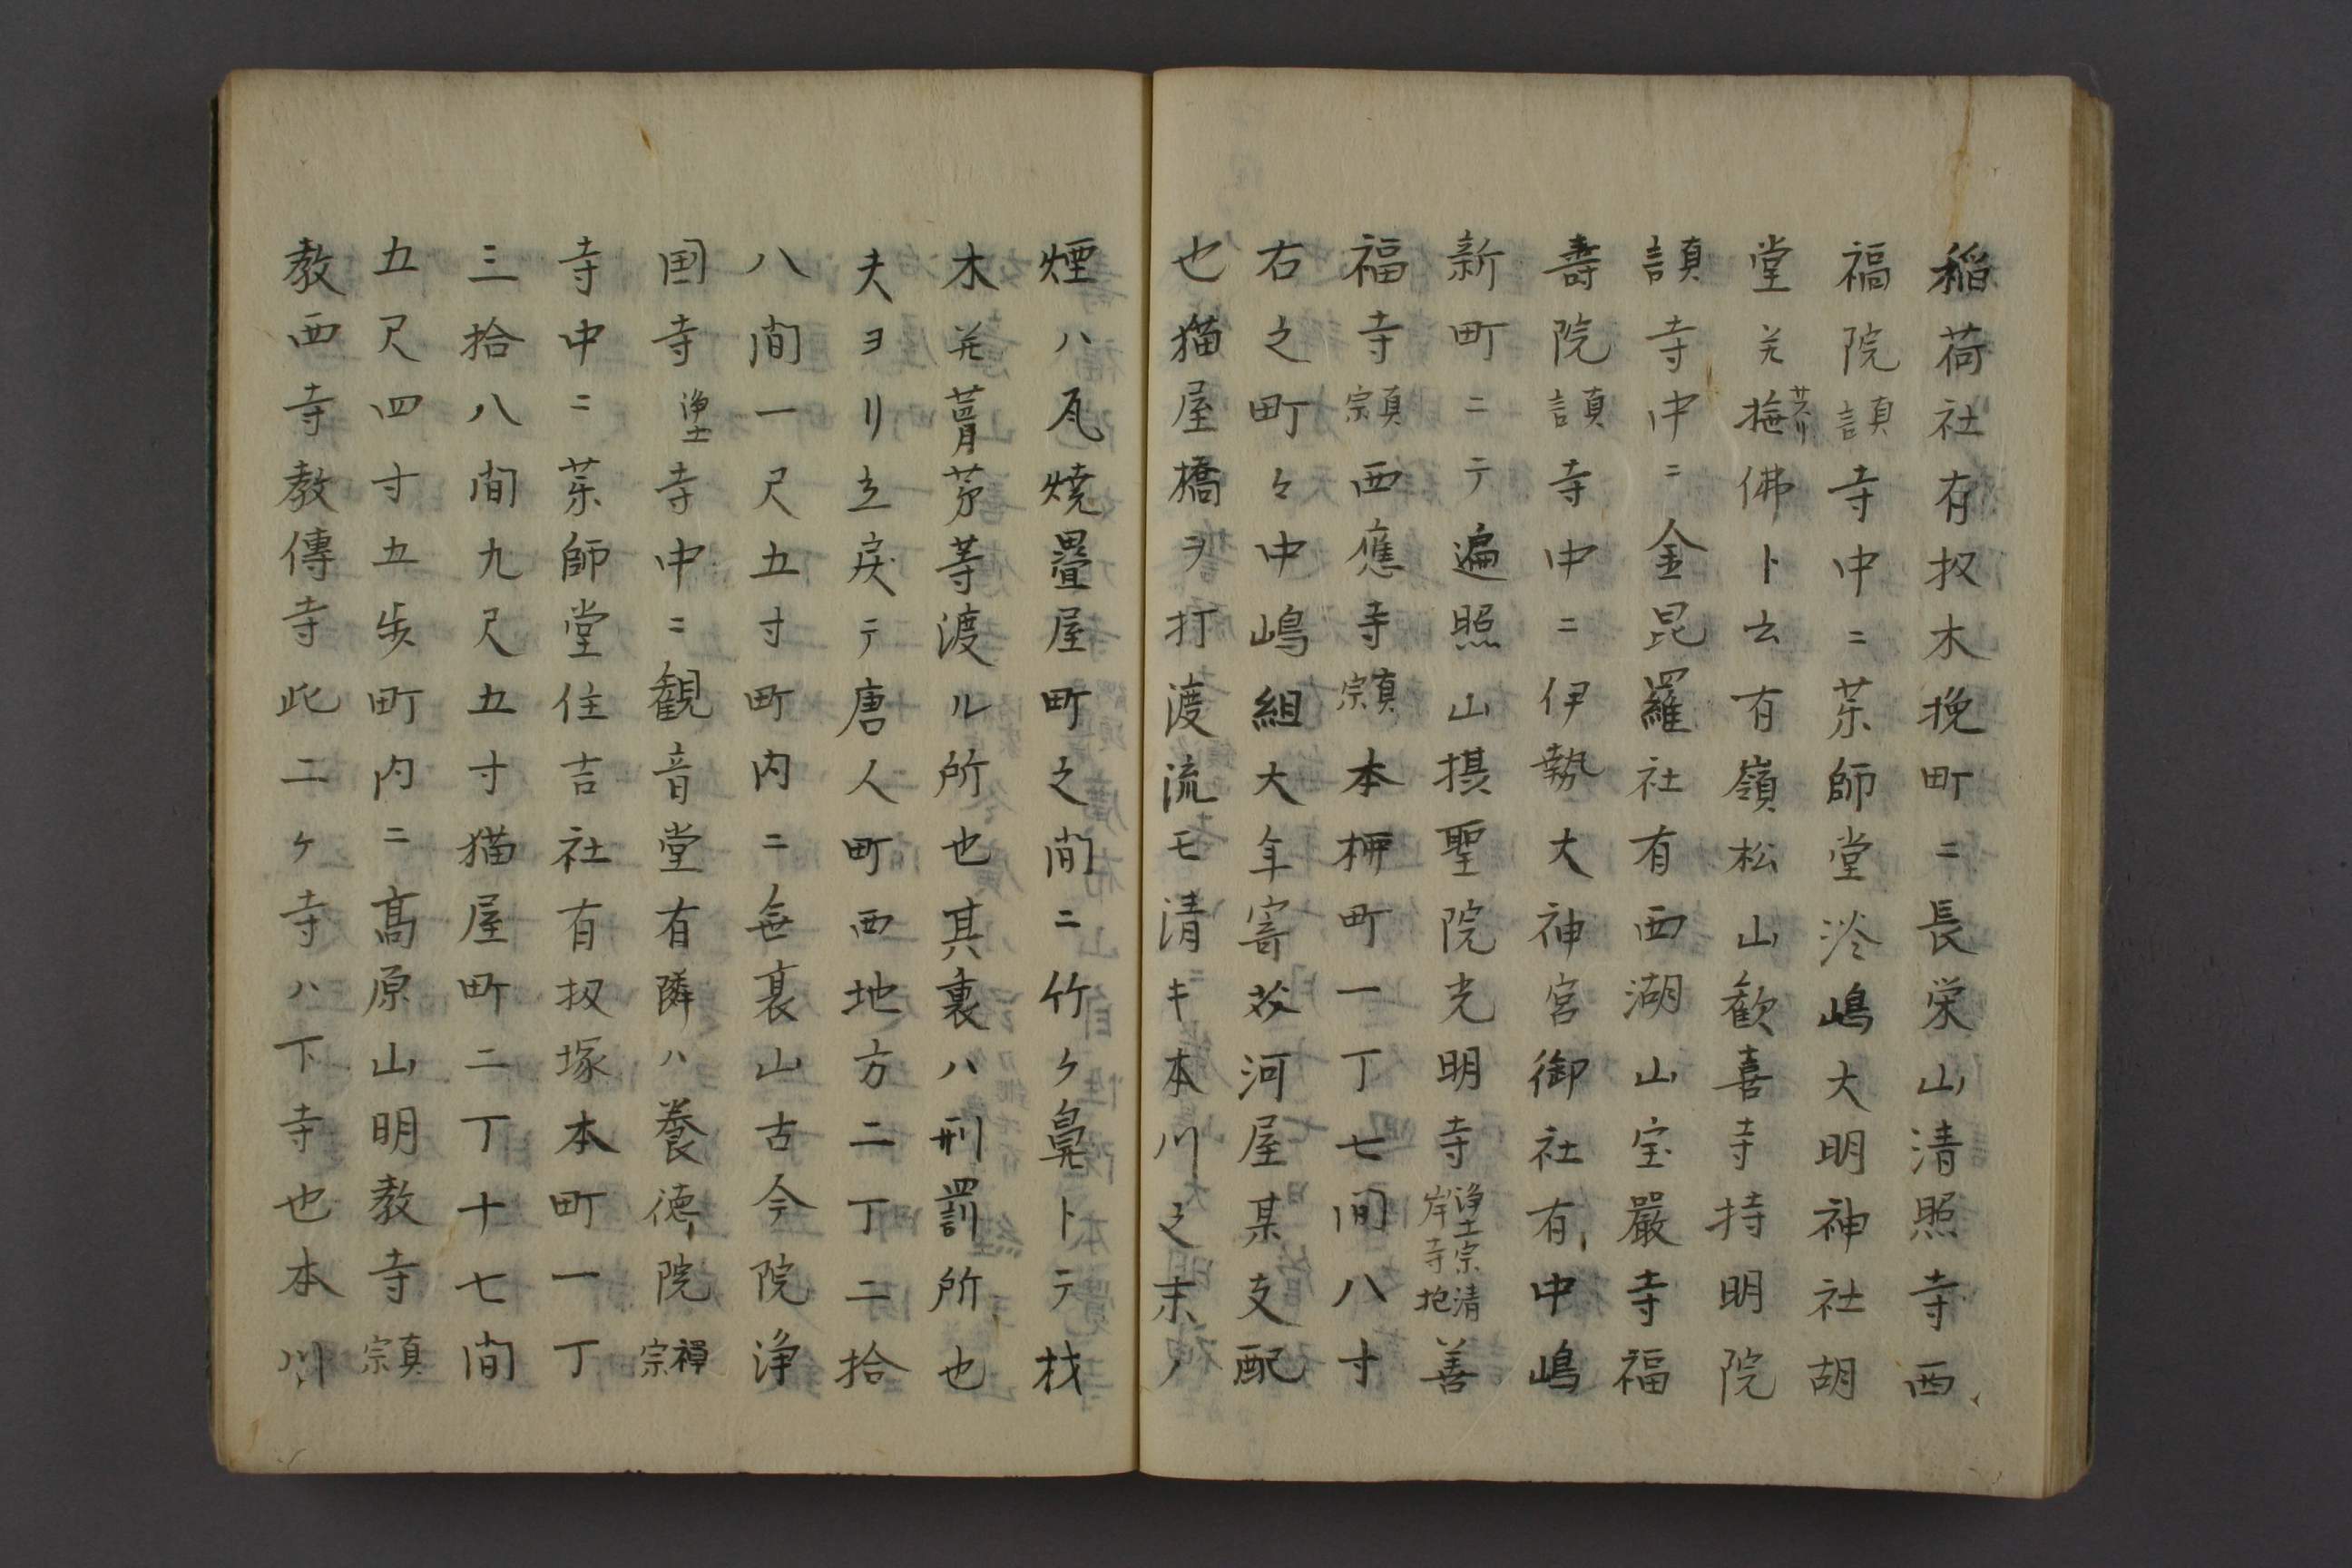 稲荷社有扨木挽町ニ長栄山清照寺西
福院真言寺中ニ薬師堂淡嶋大明神社胡
堂并撫サスリ佛ト云有嶺松山歓喜寺持明院
真言寺中ニ金昆羅社有西湖山宝嚴寺福
壽院真言寺中ニ伊勢大神宮御社有中嶋
新町ニテ遍照山摂聖院光明寺浄土宗清岸寺抱善
福寺真宗西應寺真宗本柳町一丁七間八寸
右之町々中嶋組大年寄苁河屋某支配
也猫屋橋ヲ打渡流モ清キ本川之末ノ
煙ハ瓦燒疊屋町之間ニ竹ケ鼻トテ材
木并葭茅等渡ル所也其裏ハ刑罰所也
夫ヨリ立戻テ唐人町西地方二丁二拾
八間一尺五寸町内ニ無裏山古今院浄
国寺浄土寺中ニ観音堂有隣ハ養德院禅宗
寺中ニ薬師堂住吉社有扨塚本町一丁
三拾八間九尺五寸猫屋町二丁十七間
五尺四寸五歩町内ニ髙原山明教寺真宗
教西寺教傳寺此二ケ寺ハ下寺也本川